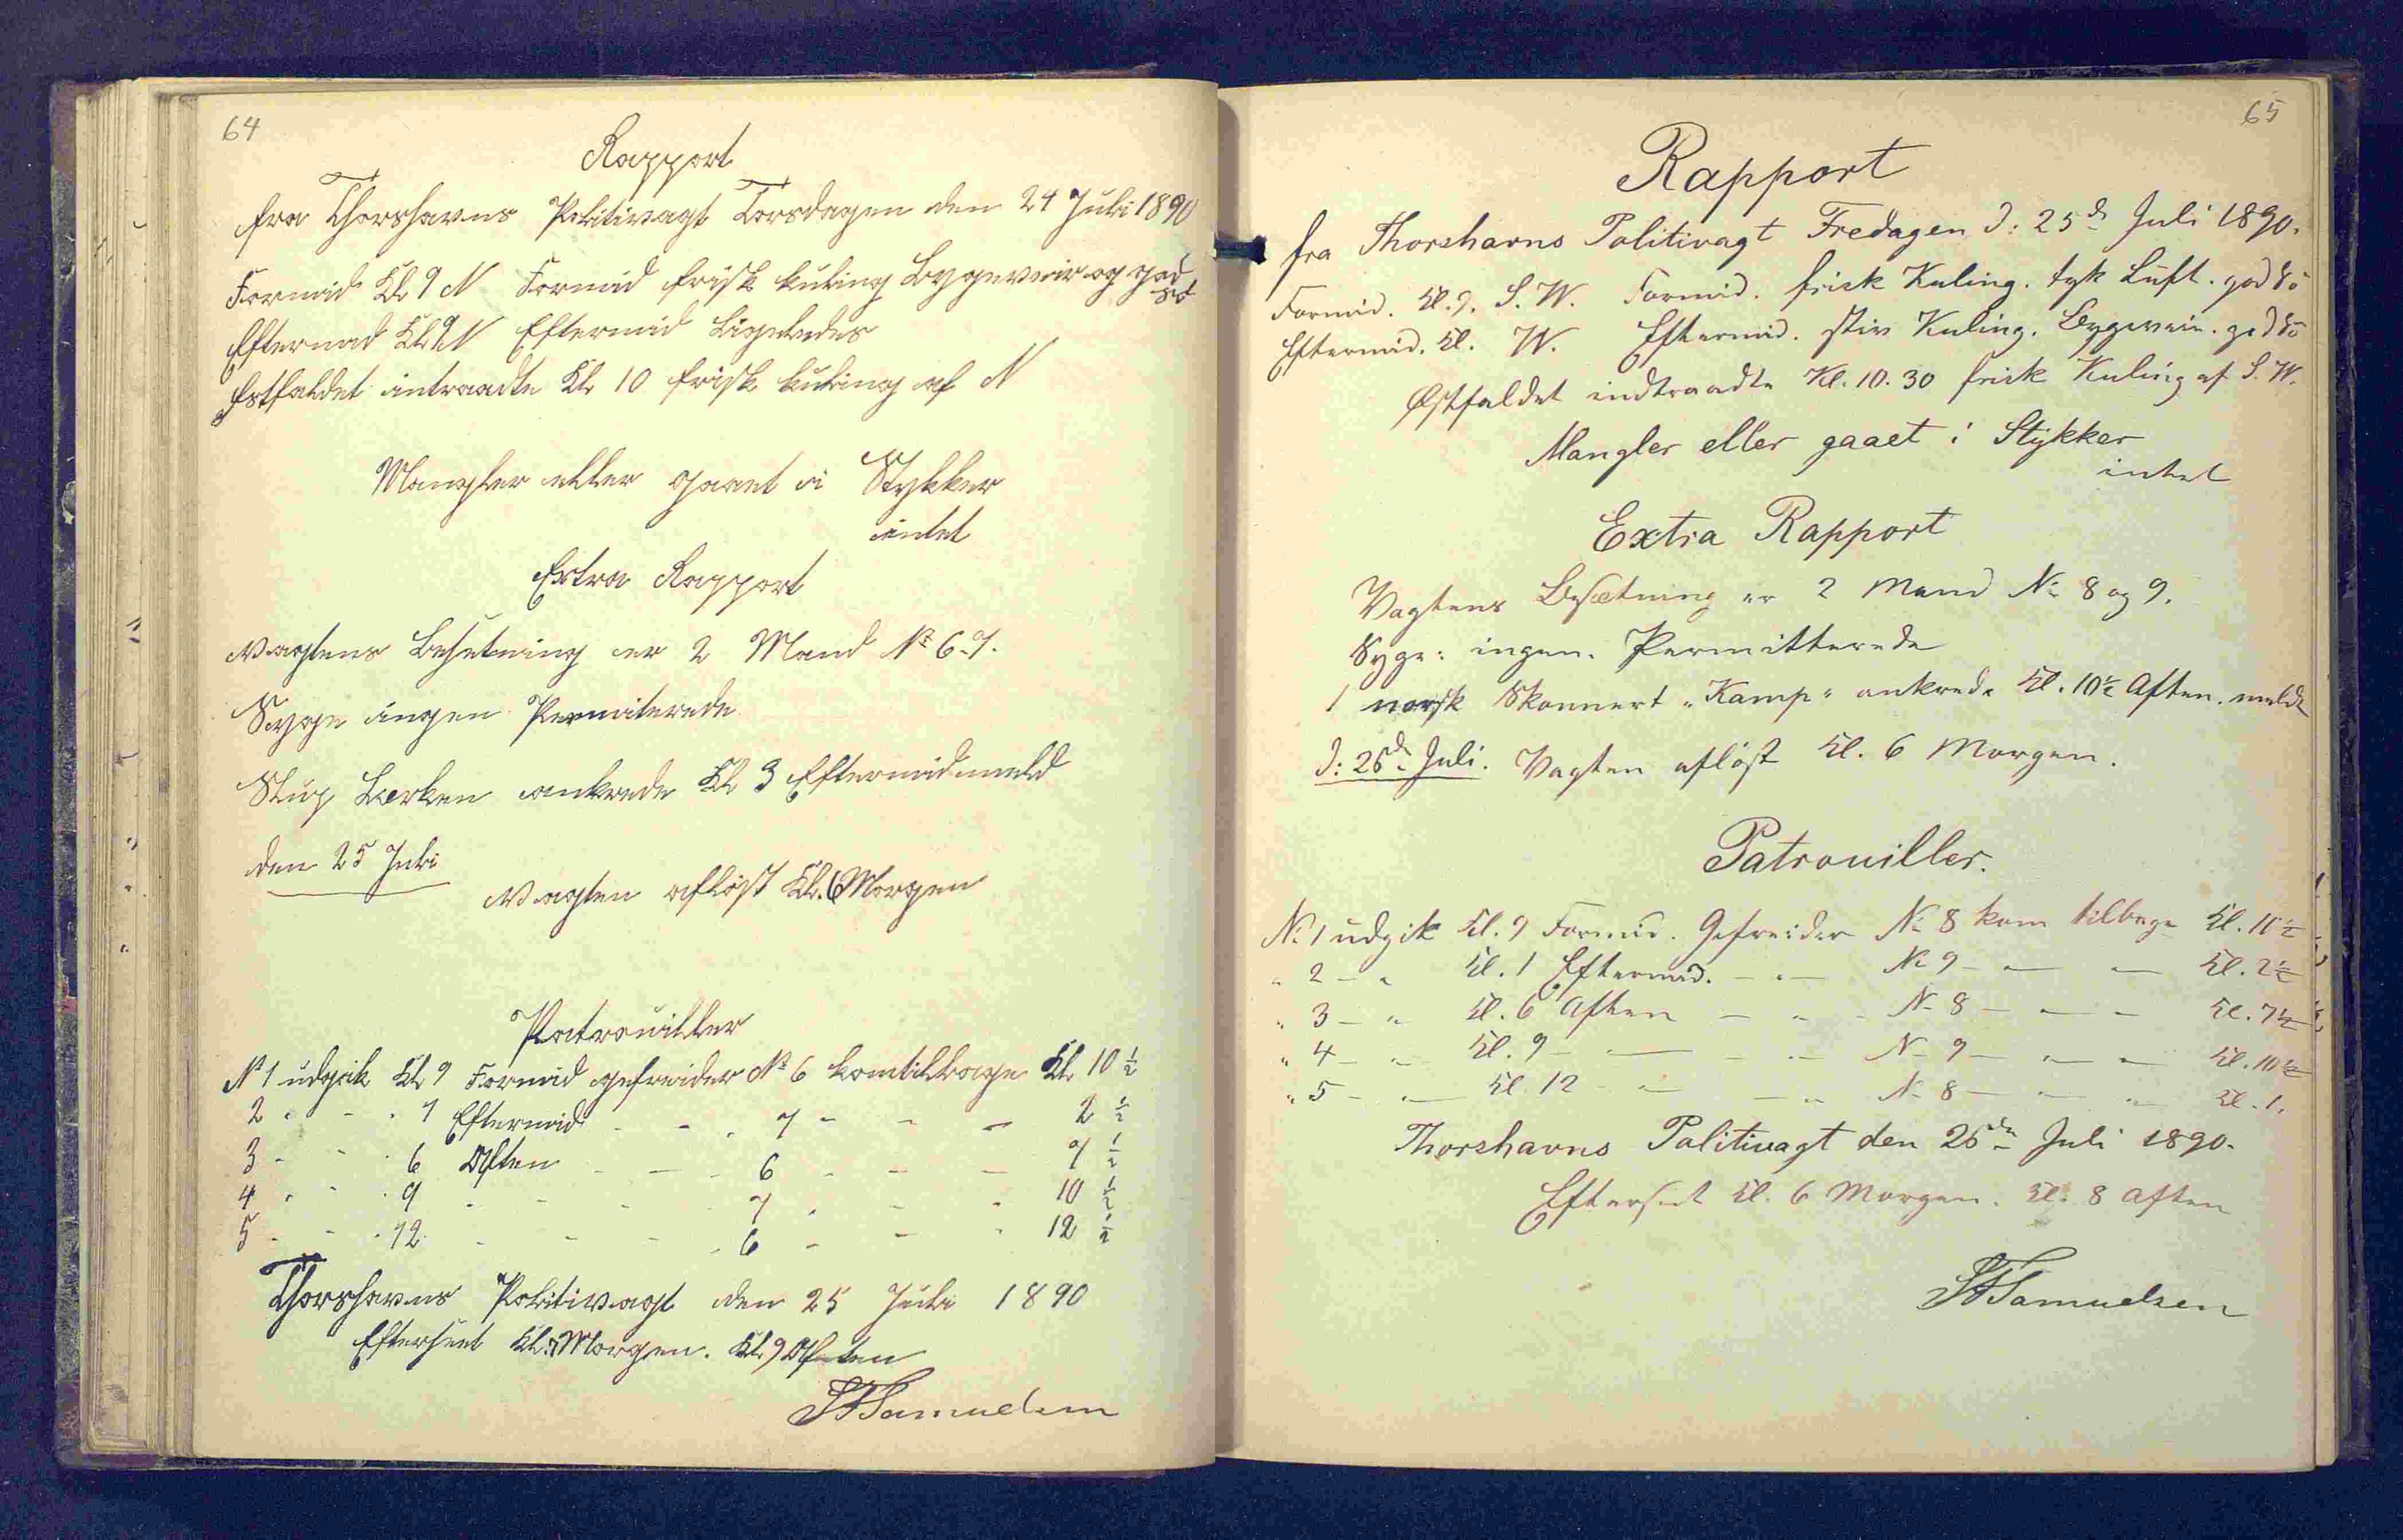 64
Rapport
fra Thorshavns Politivagt Torsdagen den 24 Juli 1890
Formid Kl 9 N Formid frisk kuling Bygeveir og god
Sö
Eftermid Kl 9 N Eftermid Ligeledes
Østfaldet intraadte Kl 10 frisk kuling af N
Mangler eller gaaet i Stykker
intet
Extra Rapport
Vagtens Besetning er 2 Mand No 6-7.
Syge ingen Permiterede
Slup Lærken ankrede Kl 3 Eftermid meld
den 25 Juli
Vagten afløst Kl. 6 Morgen
Patrouiller
No 1 udgik Kl 9 Formid gefreider No 6 kom tilbage Kl 10 ½
2 " - " 1 Eftermid - - " 7 - - - 2 ½
3 - - " 6 Aften - - - 6 - - - 7 ½
4 " - " 9 - - - 7 " - " 10 ½
5 - - " 12 - - - " 6 - - " 12 ½
Thorshavns Politivagt den 25 Juli 1890
Efterseet Kl. 7 Morgen. Kl. 9 Aften
Samuelsen
65
Rapport
fra Thorshavns Politivagt Fredagen d: 25de Juli 1890.
Formid. Kl. 9. S. W. Formid. frisk Kuling. tyk Luft. god Sö
Eftermid. Kl. W. Eftermid. stiv Kuling. Bygeveir. god Sö
Østfaldet indtraadte Kl. 10.30 frisk Kuling af S. W.
Mangler eller gaaet i Stykker
intet
Extra Rapport
Vagtens Besætning er 2 Mand No 8 og 9.
Syge: ingen. Permitterede
1 norsk Skonnert "Kamp" ankrede Kl. 10½ Aften. meldt
d: 26de Juli. Vagten afløst Kl. 6 Morgen.
Patrouiller.
No 1 udgik Kl. 9 Formid. Gefreider No 8 kom tilbage Kl. 10½
" 2 - " Kl. 1 Eftermid. - " - No 9 - " - " - Kl. 2½
" 3 - " Kl. 6 Aften - " - No 8 - " - " - Kl. 7½
" 4 - " Kl. 9 - " - - " - No 9 - " - " - Kl. 10½
" 5 - " - Kl. 12 - " - - " - No 8 - " - " - Kl. 1.
Thorshavns Politivagt den 26de Juli 1890.
Efterseet Kl. 6 Morgen. Kl. 8 Aften
Samuelsen